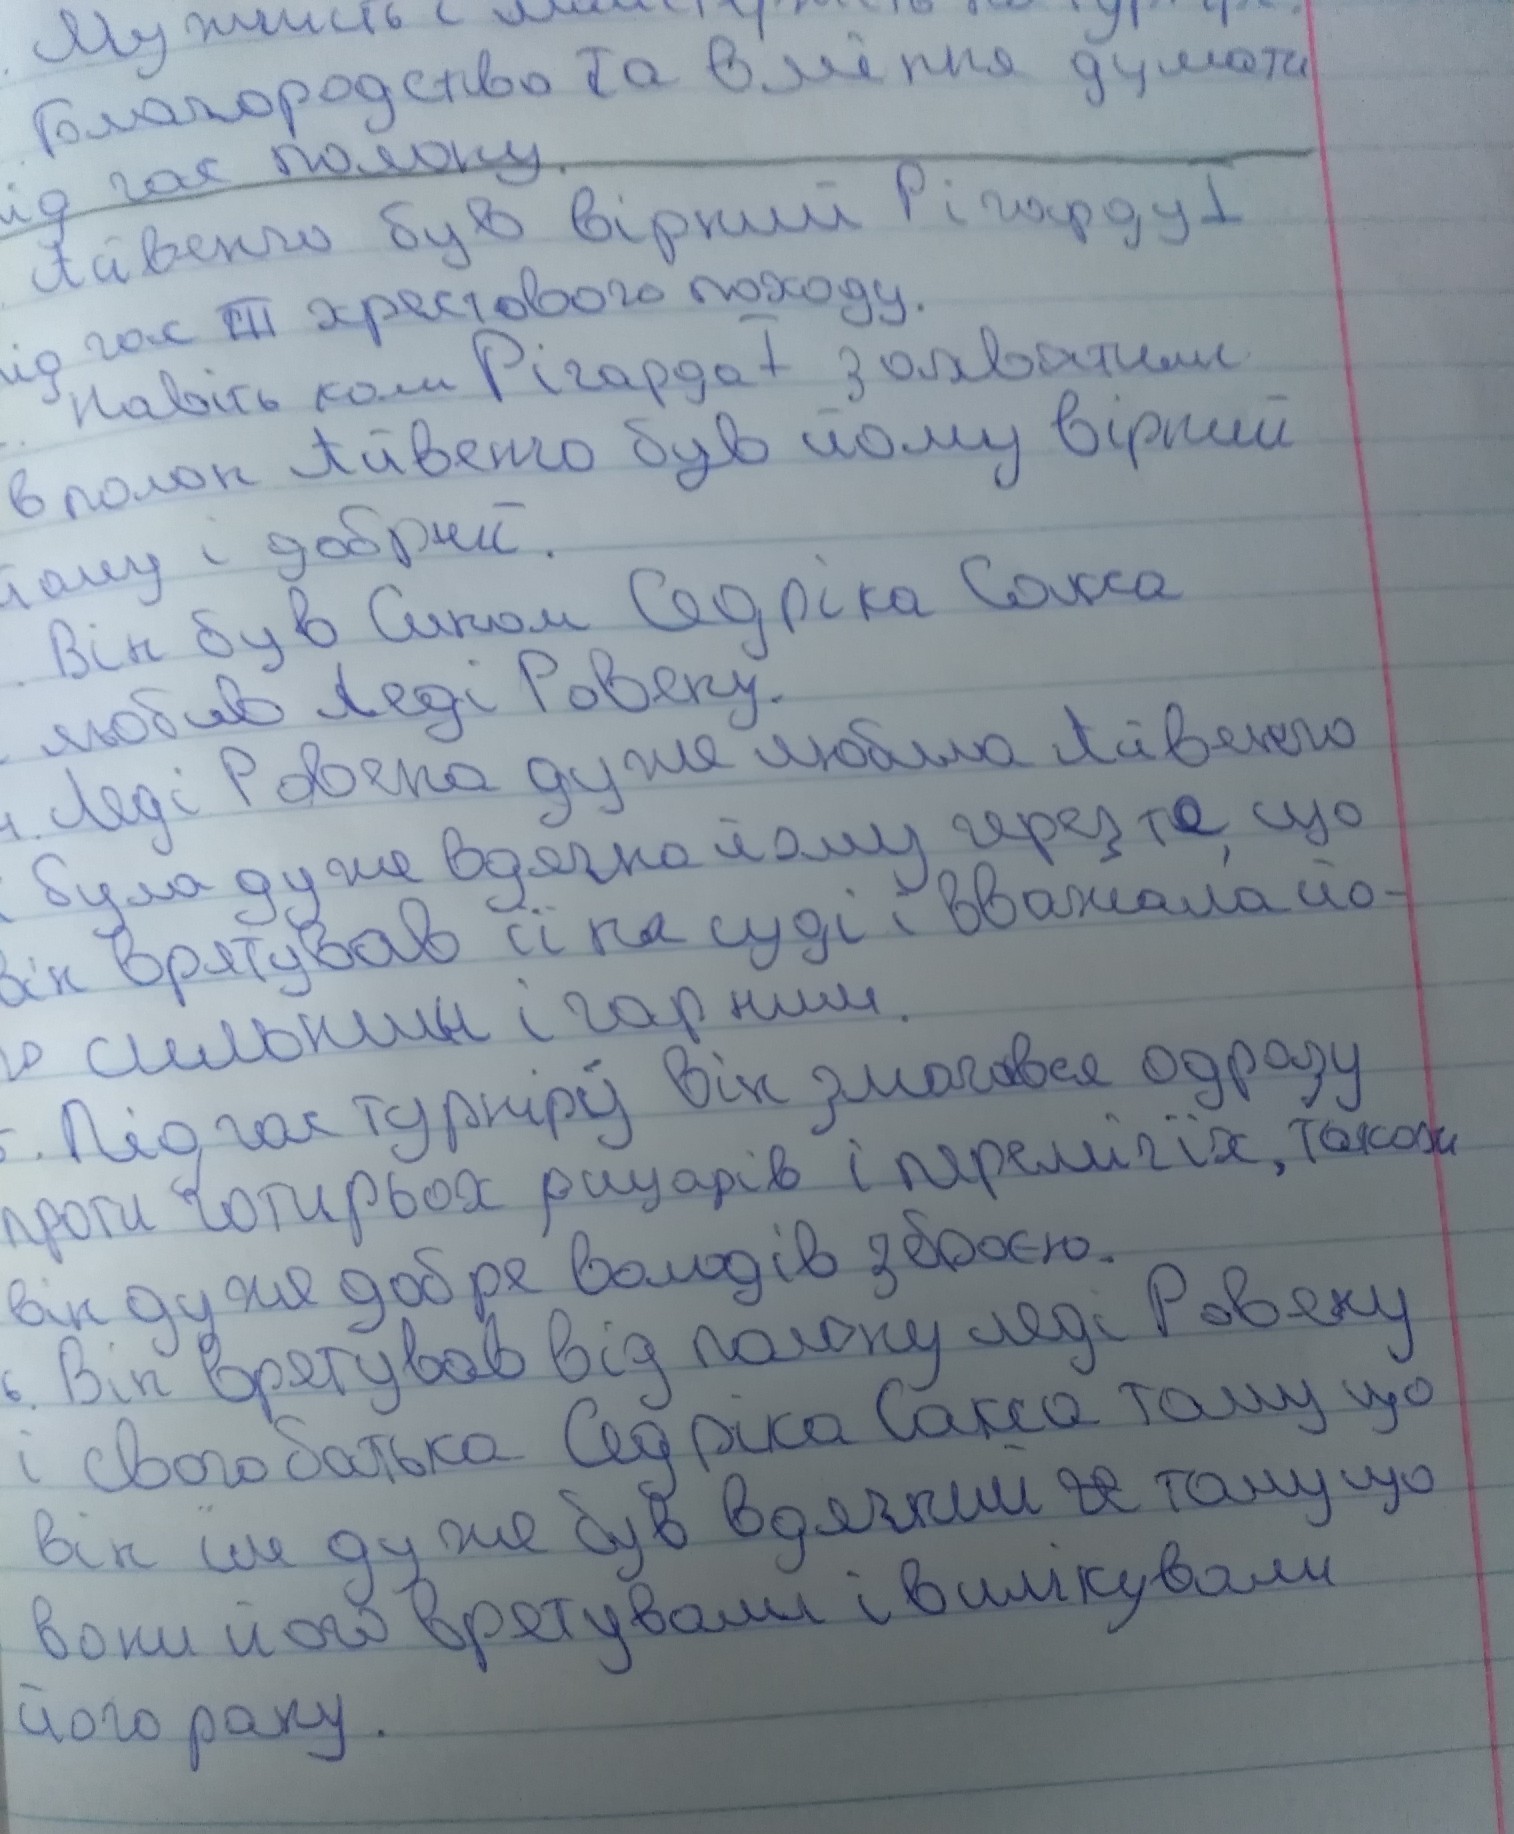 Мужність і майстерність на турнірі.
Благородство та вміння думати
під час полону.
Айвенго був вірний Річарду I
під час III хрестового походу.
Навіть коли Річарда I захватили
в полон Айвенго був йому вірний
йому і добрий.
Він був Сином Седріка Сакса
любив Леді Ровену.
4. Леді Ровена дуже любила Айвенго
і була дуже вдячна йому через те, що
він врятував її на суді і вважала йо-
го сильним і гарним.
5. Під час турніру він змагався одразу
проти чотирьох рицарів і переміг їх, також
він дуже добре володів зброєю.
6. Він врятував від полону леді Ровену
і свого батька Седріка Сакса тому що
він їм дуже був вдячний тому що
вони його врятували і вилікували
його рану.